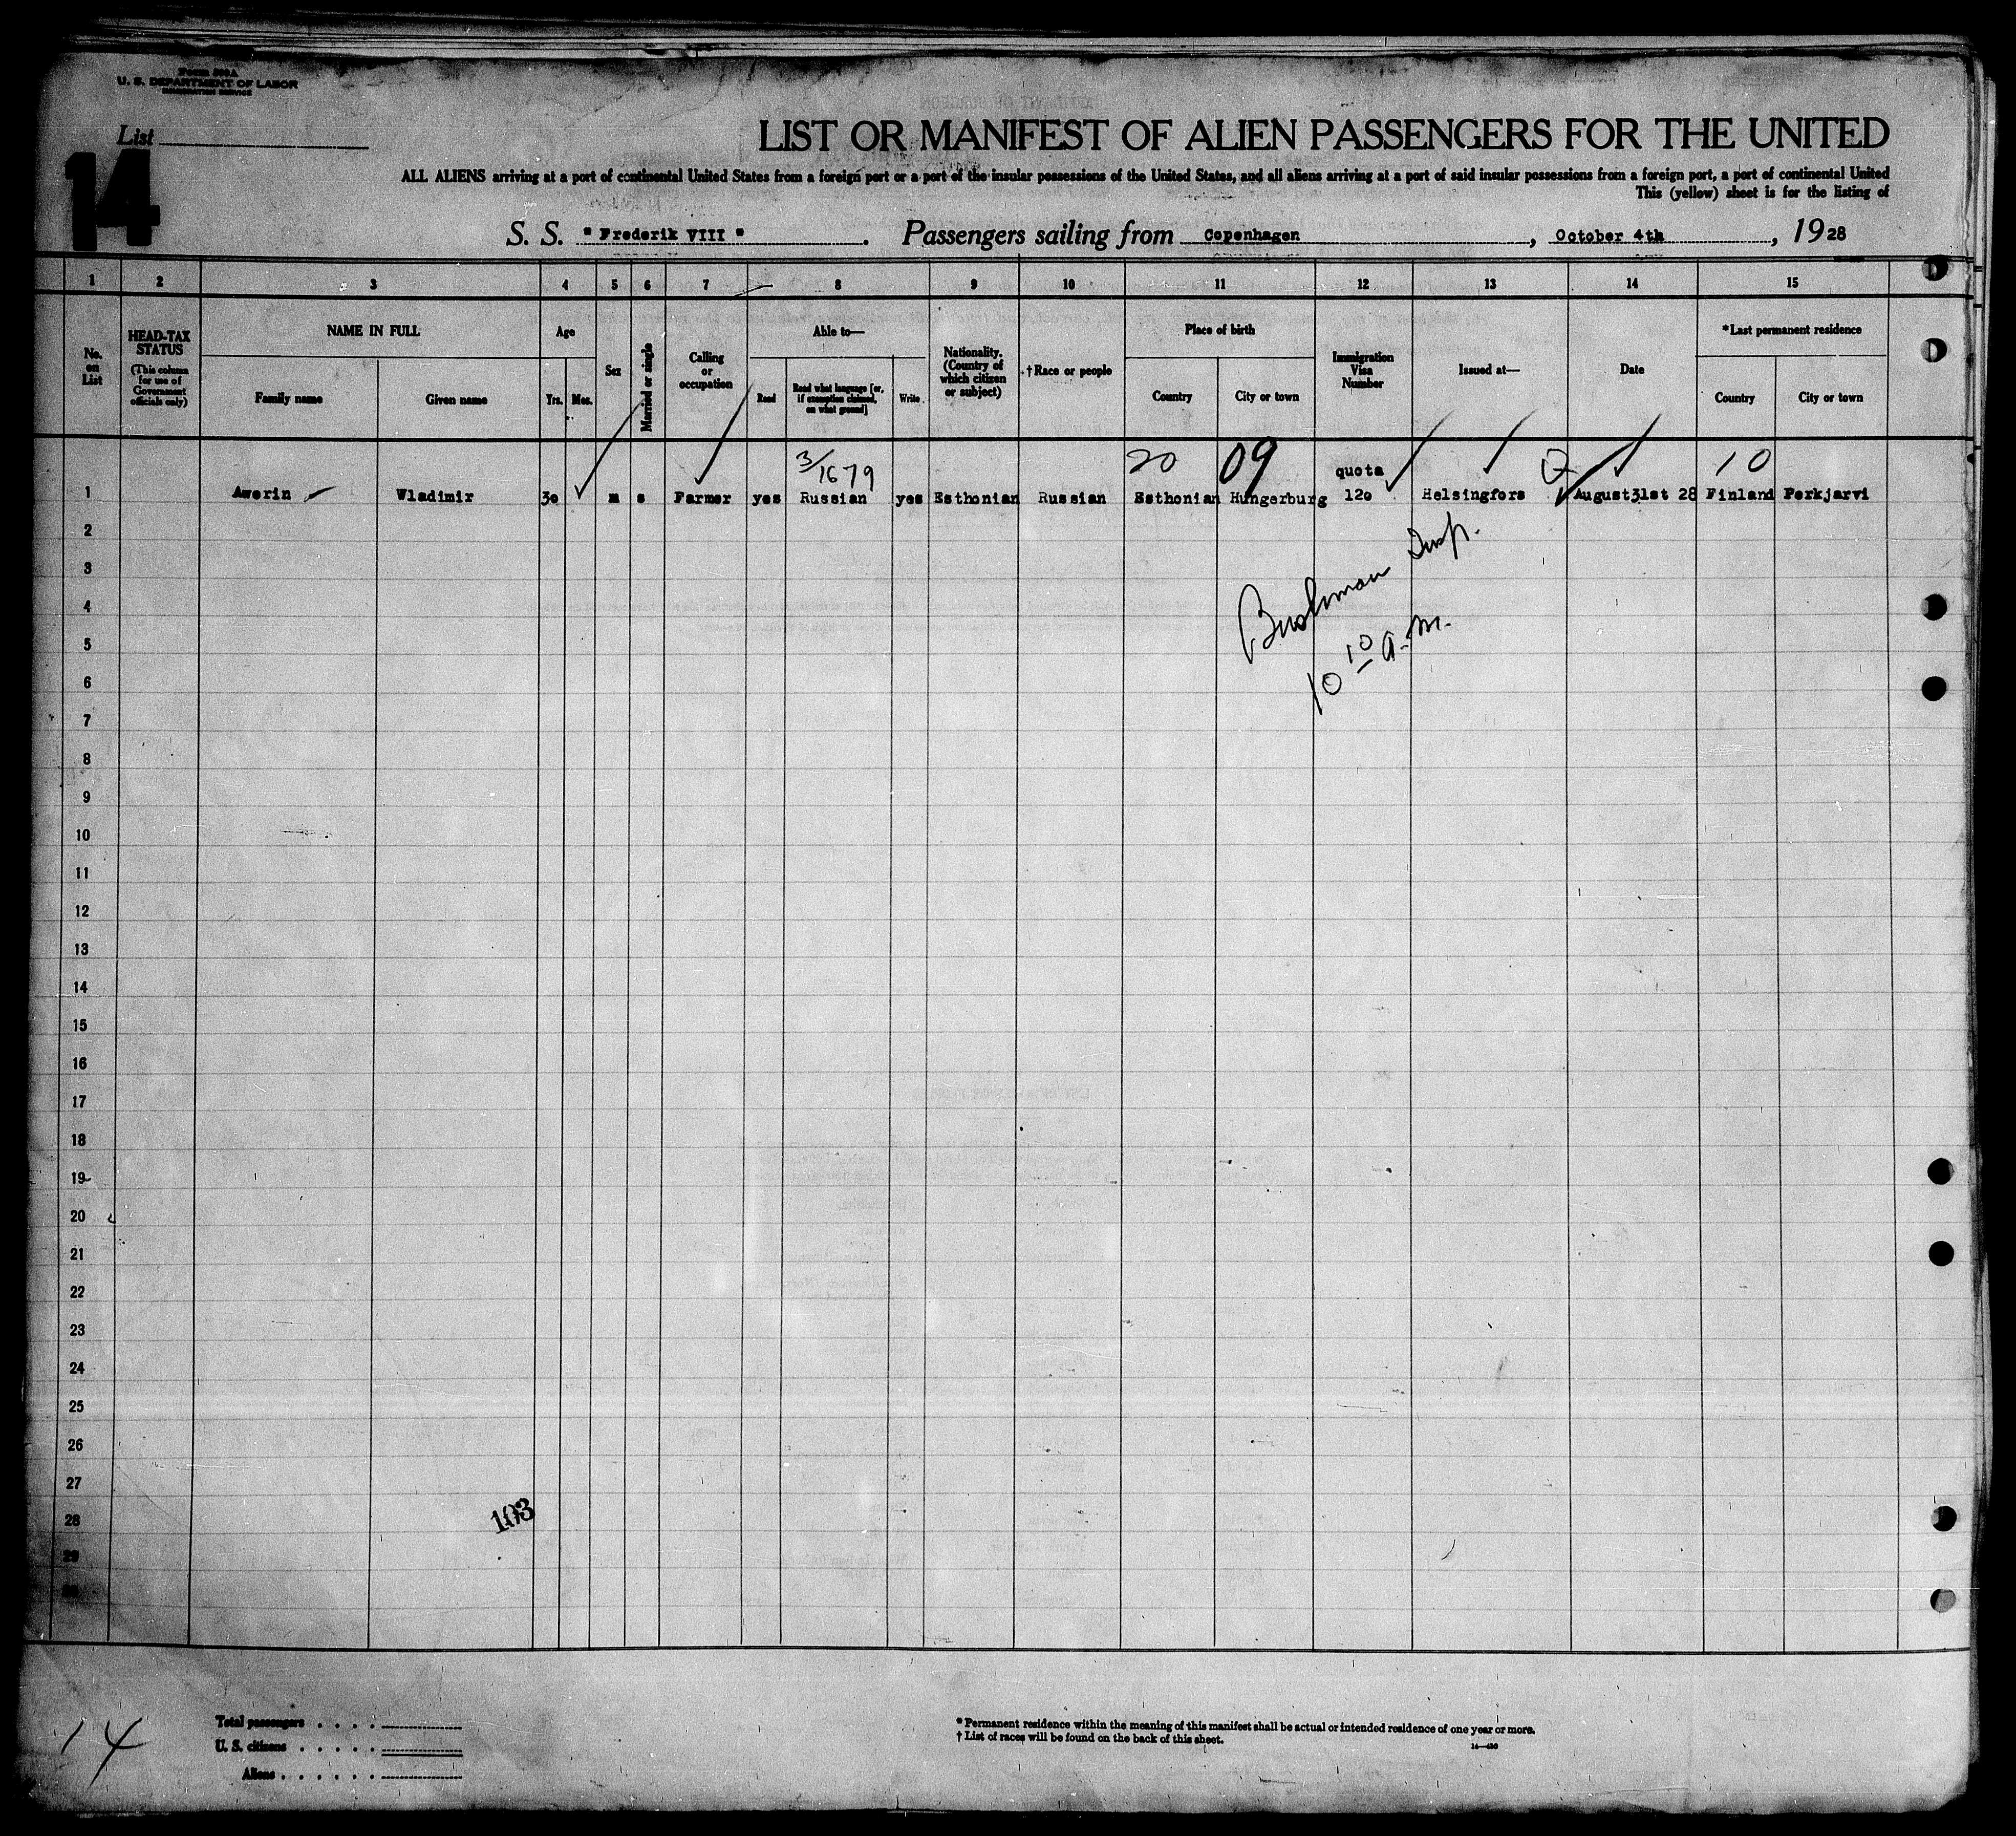 Form 500A
U. S. DEPARTMENT OF LABOR
IMMIGRATION SERVICE
List
14
LIST OR MANIFEST OF ALIEN PASSENGERS FOR THE UNITED
ALL ALIENS arriving at a port of continental United States from a foreign port or a port of the insular possessions of the United States, and all aliens arriving at a port of said insular possessions from a foreign port, a port of continental United
This (yellow) sheet is for the listing of
S. S. "Frederik VIII". Passengers sailing from Copenhagen, October 4th, 1928
1 2 3 4 5 6 7 8 9 10 11 12 13 14 15
No. on List
HEAD-TAX STATUS
(This column for use of Government officials only)
NAME IN FULL
Family name
Given name
Age
Yrs. Mos.
Sex
Married or single
Calling or occupation
Able to—
Read
Read what language [or, if exemption claimed, on what ground]
Write
Nationality. (Country of which citizen or subject)
†Race or people
Place of birth
Country
City or town
Immigration Visa Number
Issued at—
Date
*Last permanent residence
Country
City or town
3/1679 20 09 quota Q 10
1 Awerin Wladimir 30 m s Farmer yes Russian yes Esthonian Russian Esthonian Hungerburg 120 Helsingfors August31st 28 Finland Perkjarvi
2
Bushman Insp.
3
4
5
10 10 a.m.
6
7
8
9
10
11
12
13
14
15
16
17
18
19
20
21
22
23
24
25
26
27
28
103
29
30
14
Total passengers
U. S. citizens
Aliens
*Permanent residence within the meaning of this manifest shall be actual or intended residence of one year or more.
† List of races will be found on the back of this sheet.